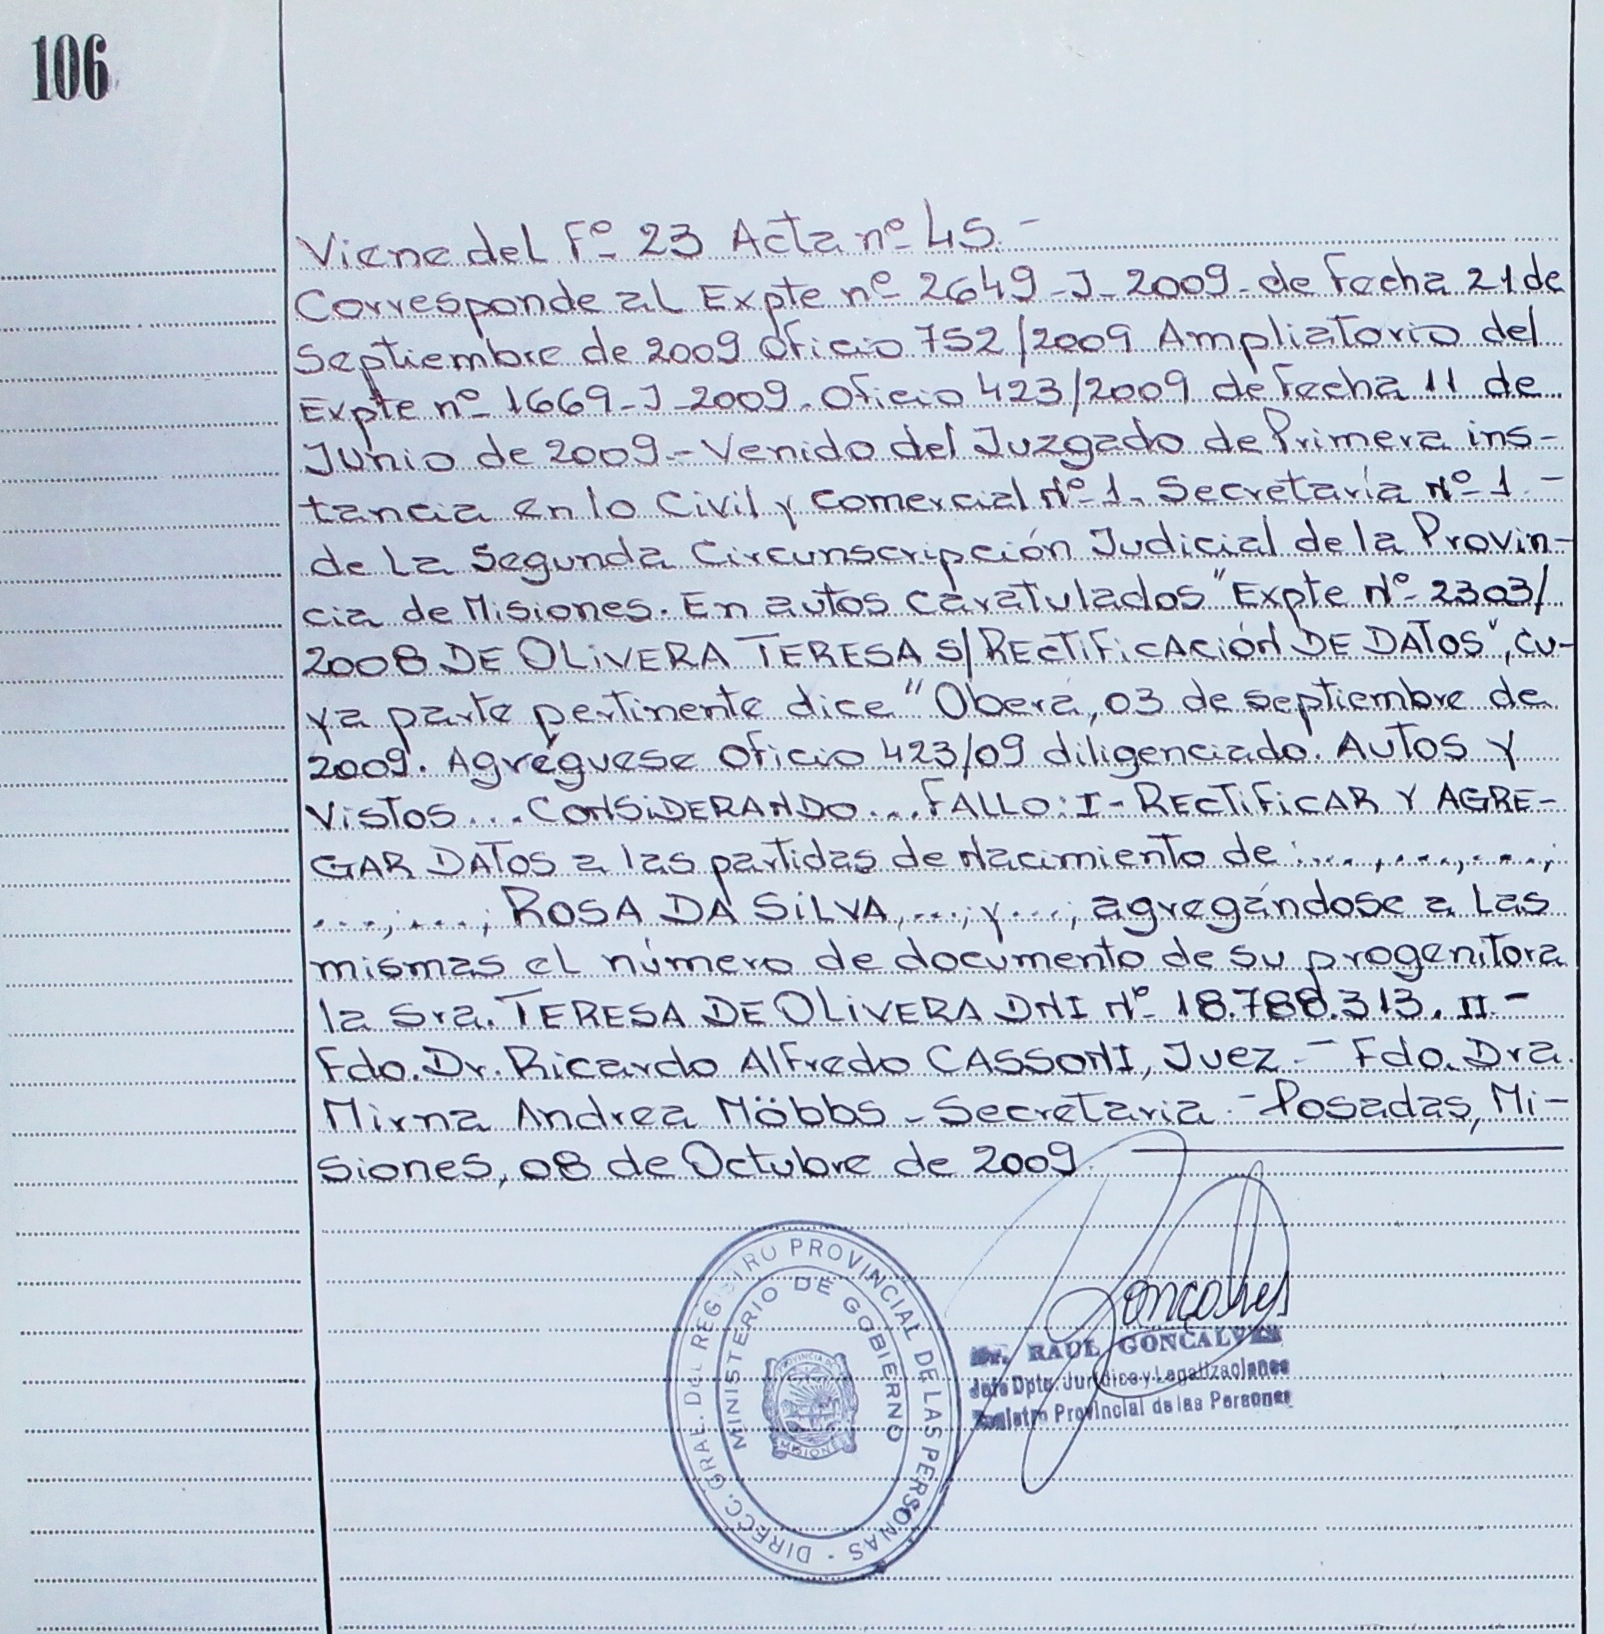 106
Viene del Fº 23 Acta nº 45.-
Corresponde al Expte nº 2649-J-2009-de fecha 21 de
Septiembre de 2009 Oficio 752/2009 Ampliatorio del
Expte nº 1669-J-2009. Oficio 423/2009 de fecha 11 de
Junio de 2009.- Venido del Juzgado de Primera ins-
tancia en lo Civil y Comercial Nº 1. Secretaría Nº 1 -
de La Segunda Circunscripción Judicial de la Provin-
cia de Misiones. En autos caratulados "Expte Nº 2303/
2008 DE OLIVERA TERESA S/RECTIFICACIÓN DE DATOS", cu-
ya parte pertinente dice "Oberá, 03 de septiembre de
2009. Agréguese Oficio 423/09 diligenciado. Autos y
Vistos... CONSIDERANDO... FALLO: I- RECTIFICAR Y AGRE-
GAR DATOS a las partidas de Nacimiento de: ...., ...., ....;
...., ...., ROSA DA SILVA, ...; y ...; agregándose a Las
mismas el número de documento de su progenitora
la Sra. TERESA DE OLIVERA DNI Nº 18.788.313. II-
Fdo. Dr. Ricardo Alfredo CASSONI, Juez.- Fdo. Dra.
Mirna Andrea Möbbs - Secretaria - Posadas, Mi-
siones, 08 de Octubre de 2009.
DIRECC. GRAL. DEL REGISTRO PROVINCIAL DE LAS PERSONAS -
MINISTERIO DE GOBIERNO
PROVINCIA DE
MISIONES
Goncalves
Dr. RAUL GONCALVES
Jefe Dpto. Jurídica y Legalizaciones
Registro Provincial de las Personas